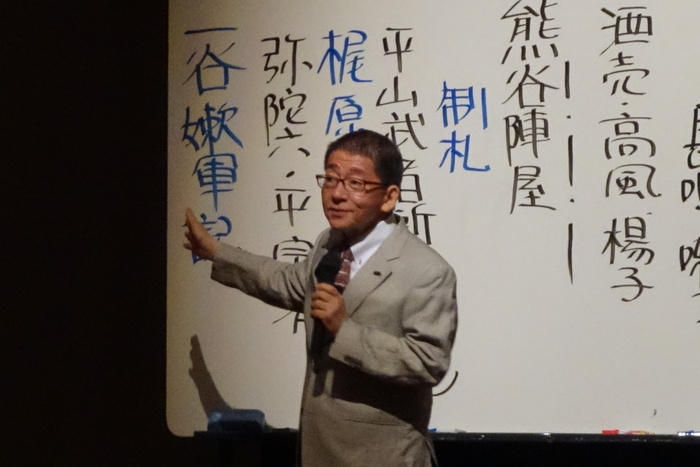 酒売・高風 楊子
熊谷陣屋
制札
平山武者所
梶原
弥陀六・平宗
一谷嫩軍記